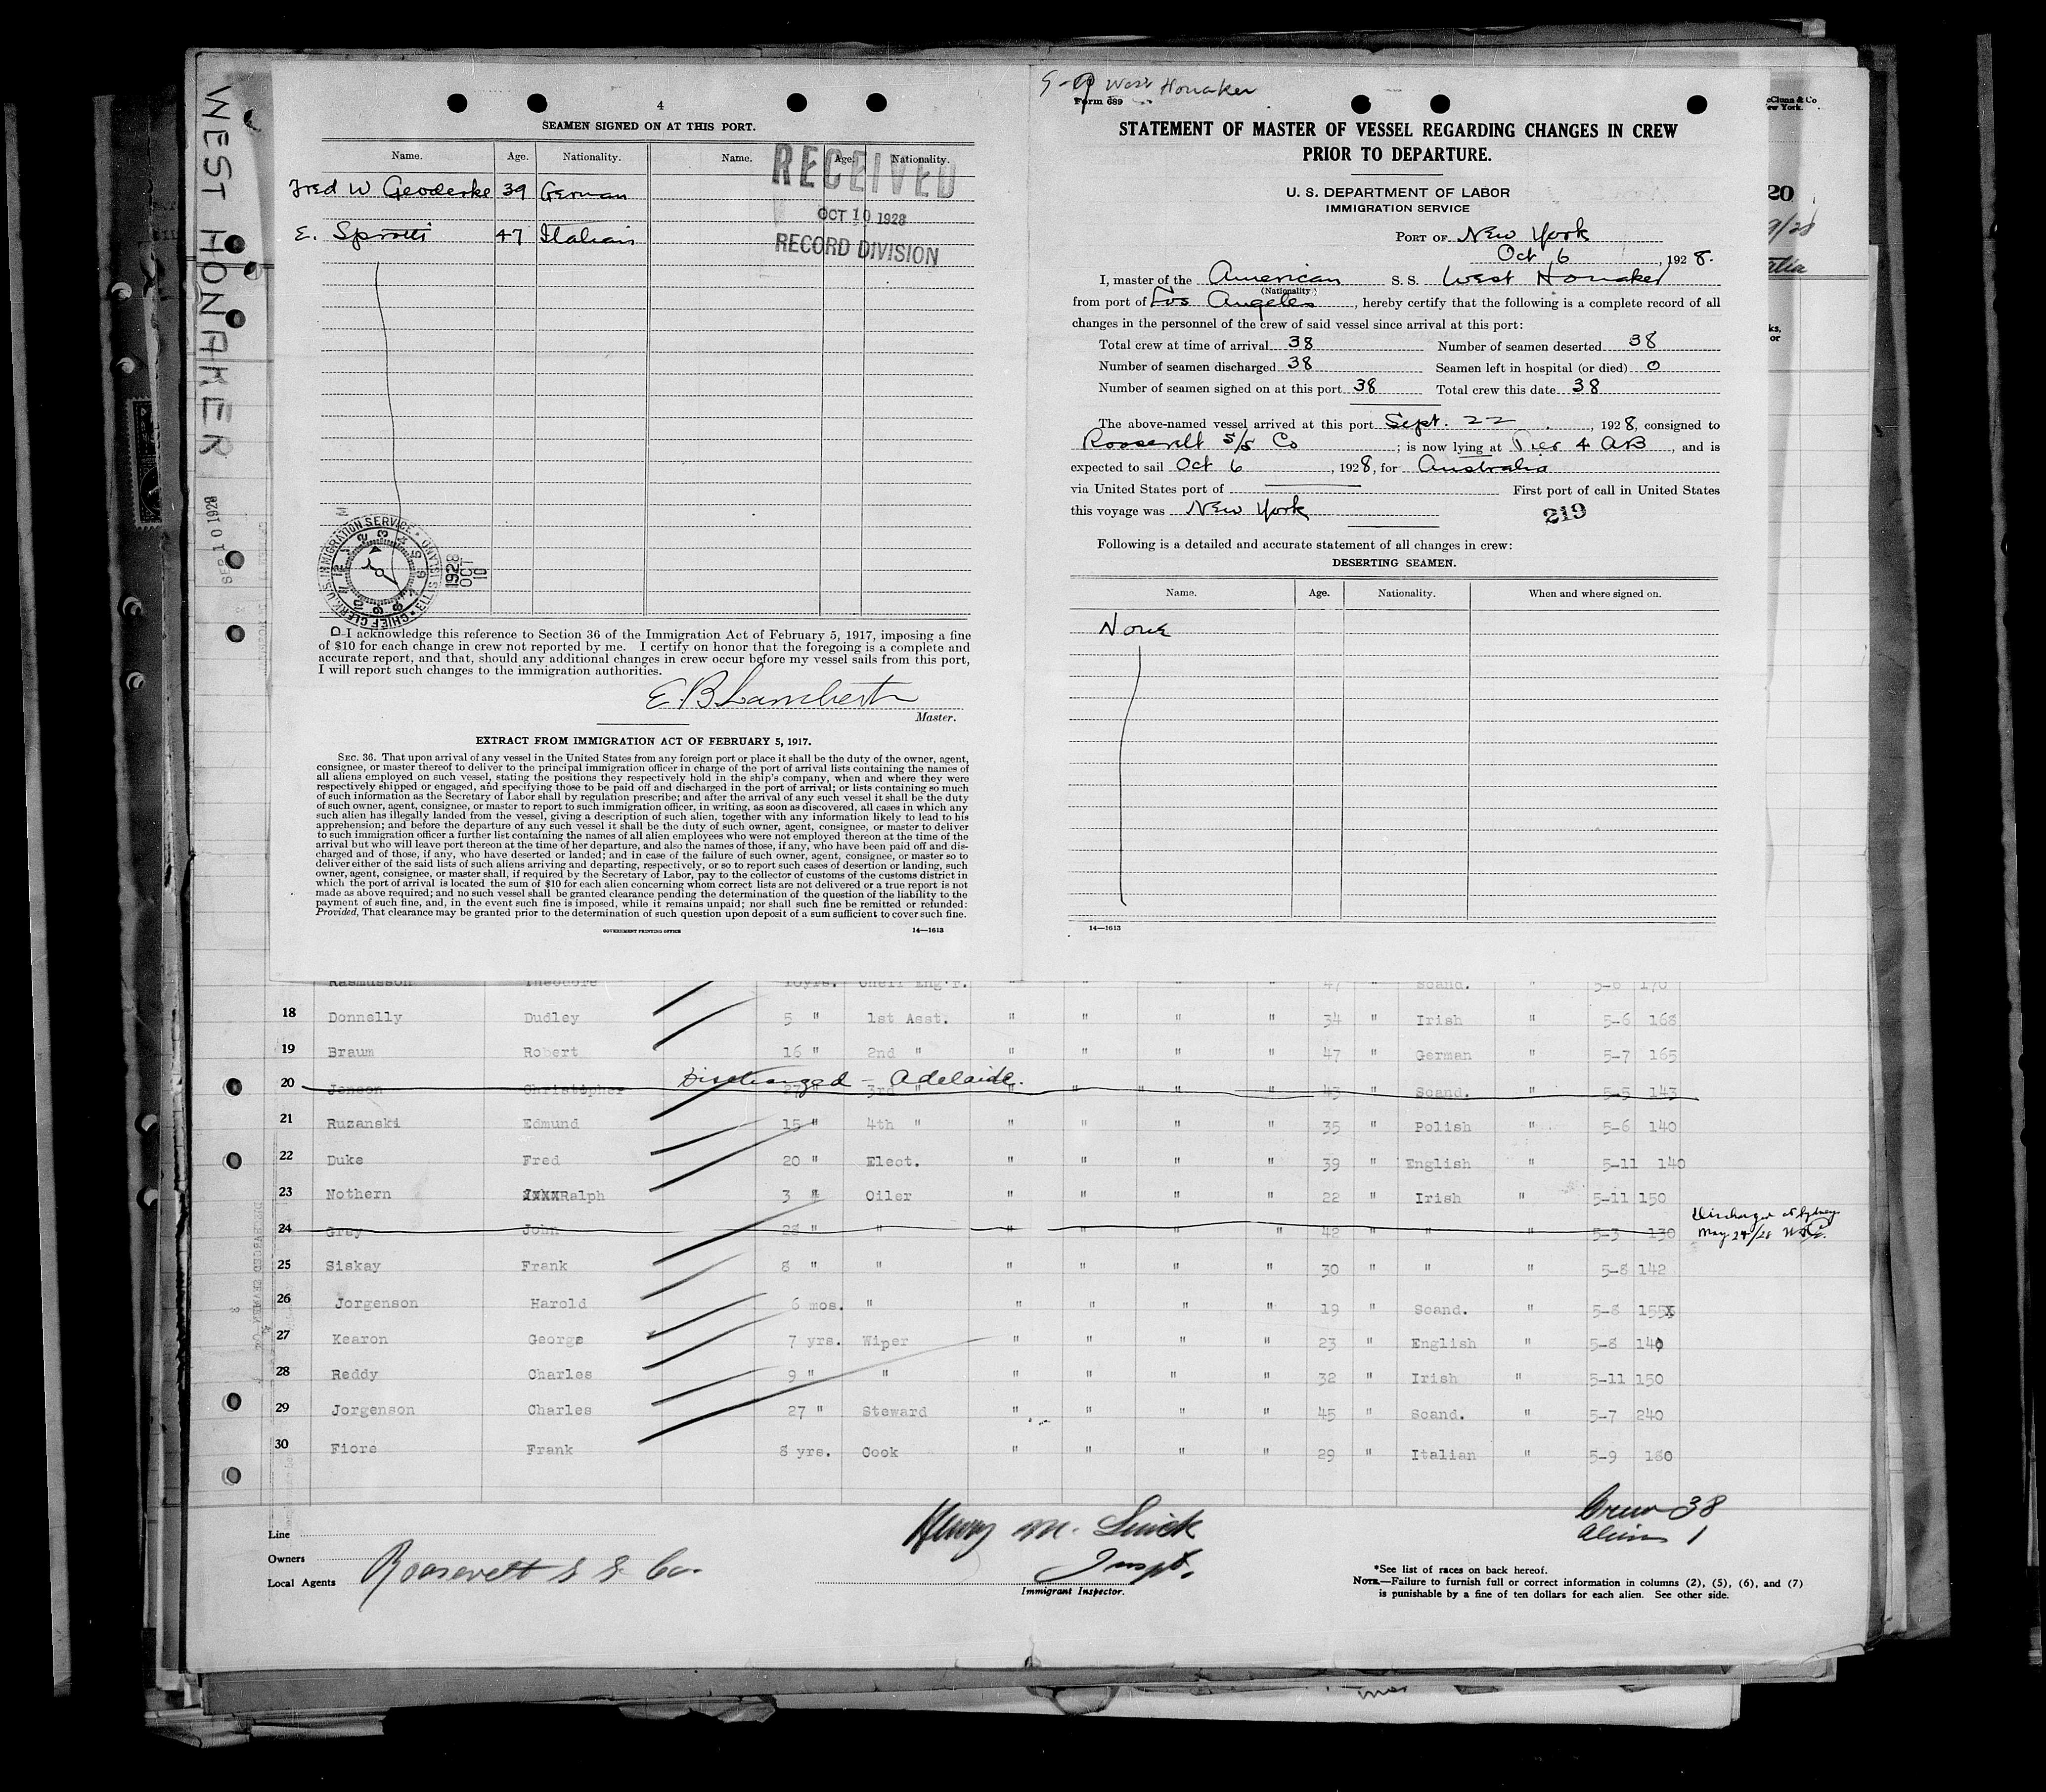 WEST HONAKER
SEP 10 1928
4
SEAMEN SIGNED ON AT THIS PORT.
Name. Age. Nationality. Name. Age. Nationality.
Fred W Geoderke 39 German
E. Sprotti 47 Italian
RECEIVED
OCT 10 1928
RECORD DIVISION
U.S. IMMIGRATION SERVICE ELLIS ISLAND CHIEF CLERK
1928 OCT 10
I acknowledge this reference to Section 36 of the Immigration Act of February 5, 1917, imposing a fine
of $10 for each change in crew not reported by me. I certify on honor that the foregoing is a complete and
accurate report, and that, should any additional changes in crew occur before my vessel sails from this port,
I will report such changes to the immigration authorities.
E. B Lamberth
Master.
EXTRACT FROM IMMIGRATION ACT OF FEBRUARY 5, 1917.
SEC. 36. That upon arrival of any vessel in the United States from any foreign port or place it shall be the duty of the owner, agent,
consignee, or master thereof to deliver to the principal immigration officer in charge of the port of arrival lists containing the names of
all aliens employed on such vessel, stating the positions they respectively hold in the ship's company, when and where they were
respectively shipped or engaged, and specifying those to be paid off and discharged in the port of arrival; or lists containing so much
of such information as the Secretary of Labor shall by regulation prescribe; and after the arrival of any such vessel it shall be the duty
of such owner, agent, consignee, or master to report to such immigration officer, in writing, as soon as discovered, all cases in which any
such alien has illegally landed from the vessel, giving a description of such alien, together with any information likely to lead to his
apprehension; and before the departure of any such vessel it shall be the duty of such owner, agent, consignee, or master to deliver
to such immigration officer a further list containing the names of all alien employees who were not employed thereon at the time of the
arrival but who will leave port thereon at the time of her departure, and also the names of those, if any, who have been paid off and dis-
charged and of those, if any, who have deserted or landed; and in case of the failure of such owner, agent, consignee, or master so to
deliver either of the said lists of such aliens arriving and departing, respectively, or so to report such cases of desertion or landing, such
owner, agent, consignee, or master shall, if required by the Secretary of Labor, pay to the collector of customs of the customs district in
which the port of arrival is located the sum of $10 for each alien concerning whom correct lists are not delivered or a true report is not
made as above required; and no such vessel shall be granted clearance pending the determination of the question of the liability to the
payment of such fine, and, in the event such fine is imposed, while it remains unpaid; nor shall such fine be remitted or refunded:
Provided, That clearance may be granted prior to the determination of such question upon deposit of a sum sufficient to cover such fine.
GOVERNMENT PRINTING OFFICE 14—1613
West Honaker
Form 689
STATEMENT OF MASTER OF VESSEL REGARDING CHANGES IN CREW
PRIOR TO DEPARTURE.
U. S. DEPARTMENT OF LABOR
IMMIGRATION SERVICE
PORT OF New York
Oct 6, 1928.
I, master of the American S. S. West Honaker
(Nationality)
from port of Los Angeles, hereby certify that the following is a complete record of all
changes in the personnel of the crew of said vessel since arrival at this port:
Total crew at time of arrival 38 Number of seamen deserted 38
Number of seamen discharged 38 Seamen left in hospital (or died) 0
Number of seamen signed on at this port 38 Total crew this date 38
The above-named vessel arrived at this port Sept. 22, 1928, consigned to
Roosevelt S/S Co; is now lying at Pier 4 AB, and is
expected to sail Oct 6, 1928, for Australia
via United States port of First port of call in United States
this voyage was New York
219
Following is a detailed and accurate statement of all changes in crew:
DESERTING SEAMEN.
Name. Age. Nationality. When and where signed on.
None
14—1613
Rasmusson Theodore 10yrs. Cheif Eng'r. " " " " 47 " Scand. " 5-8 170
18 Donnelly Dudley 5 " 1st Asst. " " " " 34 " Irish " 5-6 168
19 Braum Robert 16 " 2nd " " " " " 47 " German " 5-7 165
Discharged - Adelaide.
20 Jenson Christopher 27 " 3rd " " " " " 43 " Scand. " 5-5 143
21 Ruzanski Edmund 15 " 4th " " " " " 35 " Polish " 5-6 140
22 Duke Fred 20 " Elect. " " " " 39 " English " 5-11 140
23 Nothern Ralph 3 " Oiler " " " " 22 " Irish " 5-11 150
24 Gray John 28 " " " " " " 42 " " " 5-3 130
Discharged at Sydney
May 24/28
25 Siskay Frank 8 " " " " " " 30 " " " 5-8 142
26 Jorgenson Harold 6 mos. " " " " " 19 " Scand. " 5-8 155
27 Kearon George 7 yrs. Wiper " " " " 23 " English " 5-8 140
28 Reddy Charles 9 " " " " " " 32 " Irish " 5-11 150
29 Jorgenson Charles 27 " Steward " " " " 45 " Scand. " 5-7 240
30 Fiore Frank 8 yrs. Cook " " " " 29 " Italian " 5-9 180
Crew 38
Aliens 1
Line
Owners
Local Agents Roosevelt S S Co.
Henry M. Smick
Inspt.
Immigrant Inspector.
*See list of races on back hereof.
NOTE.—Failure to furnish full or correct information in columns (2), (5), (6), and (7)
is punishable by a fine of ten dollars for each alien. See other side.